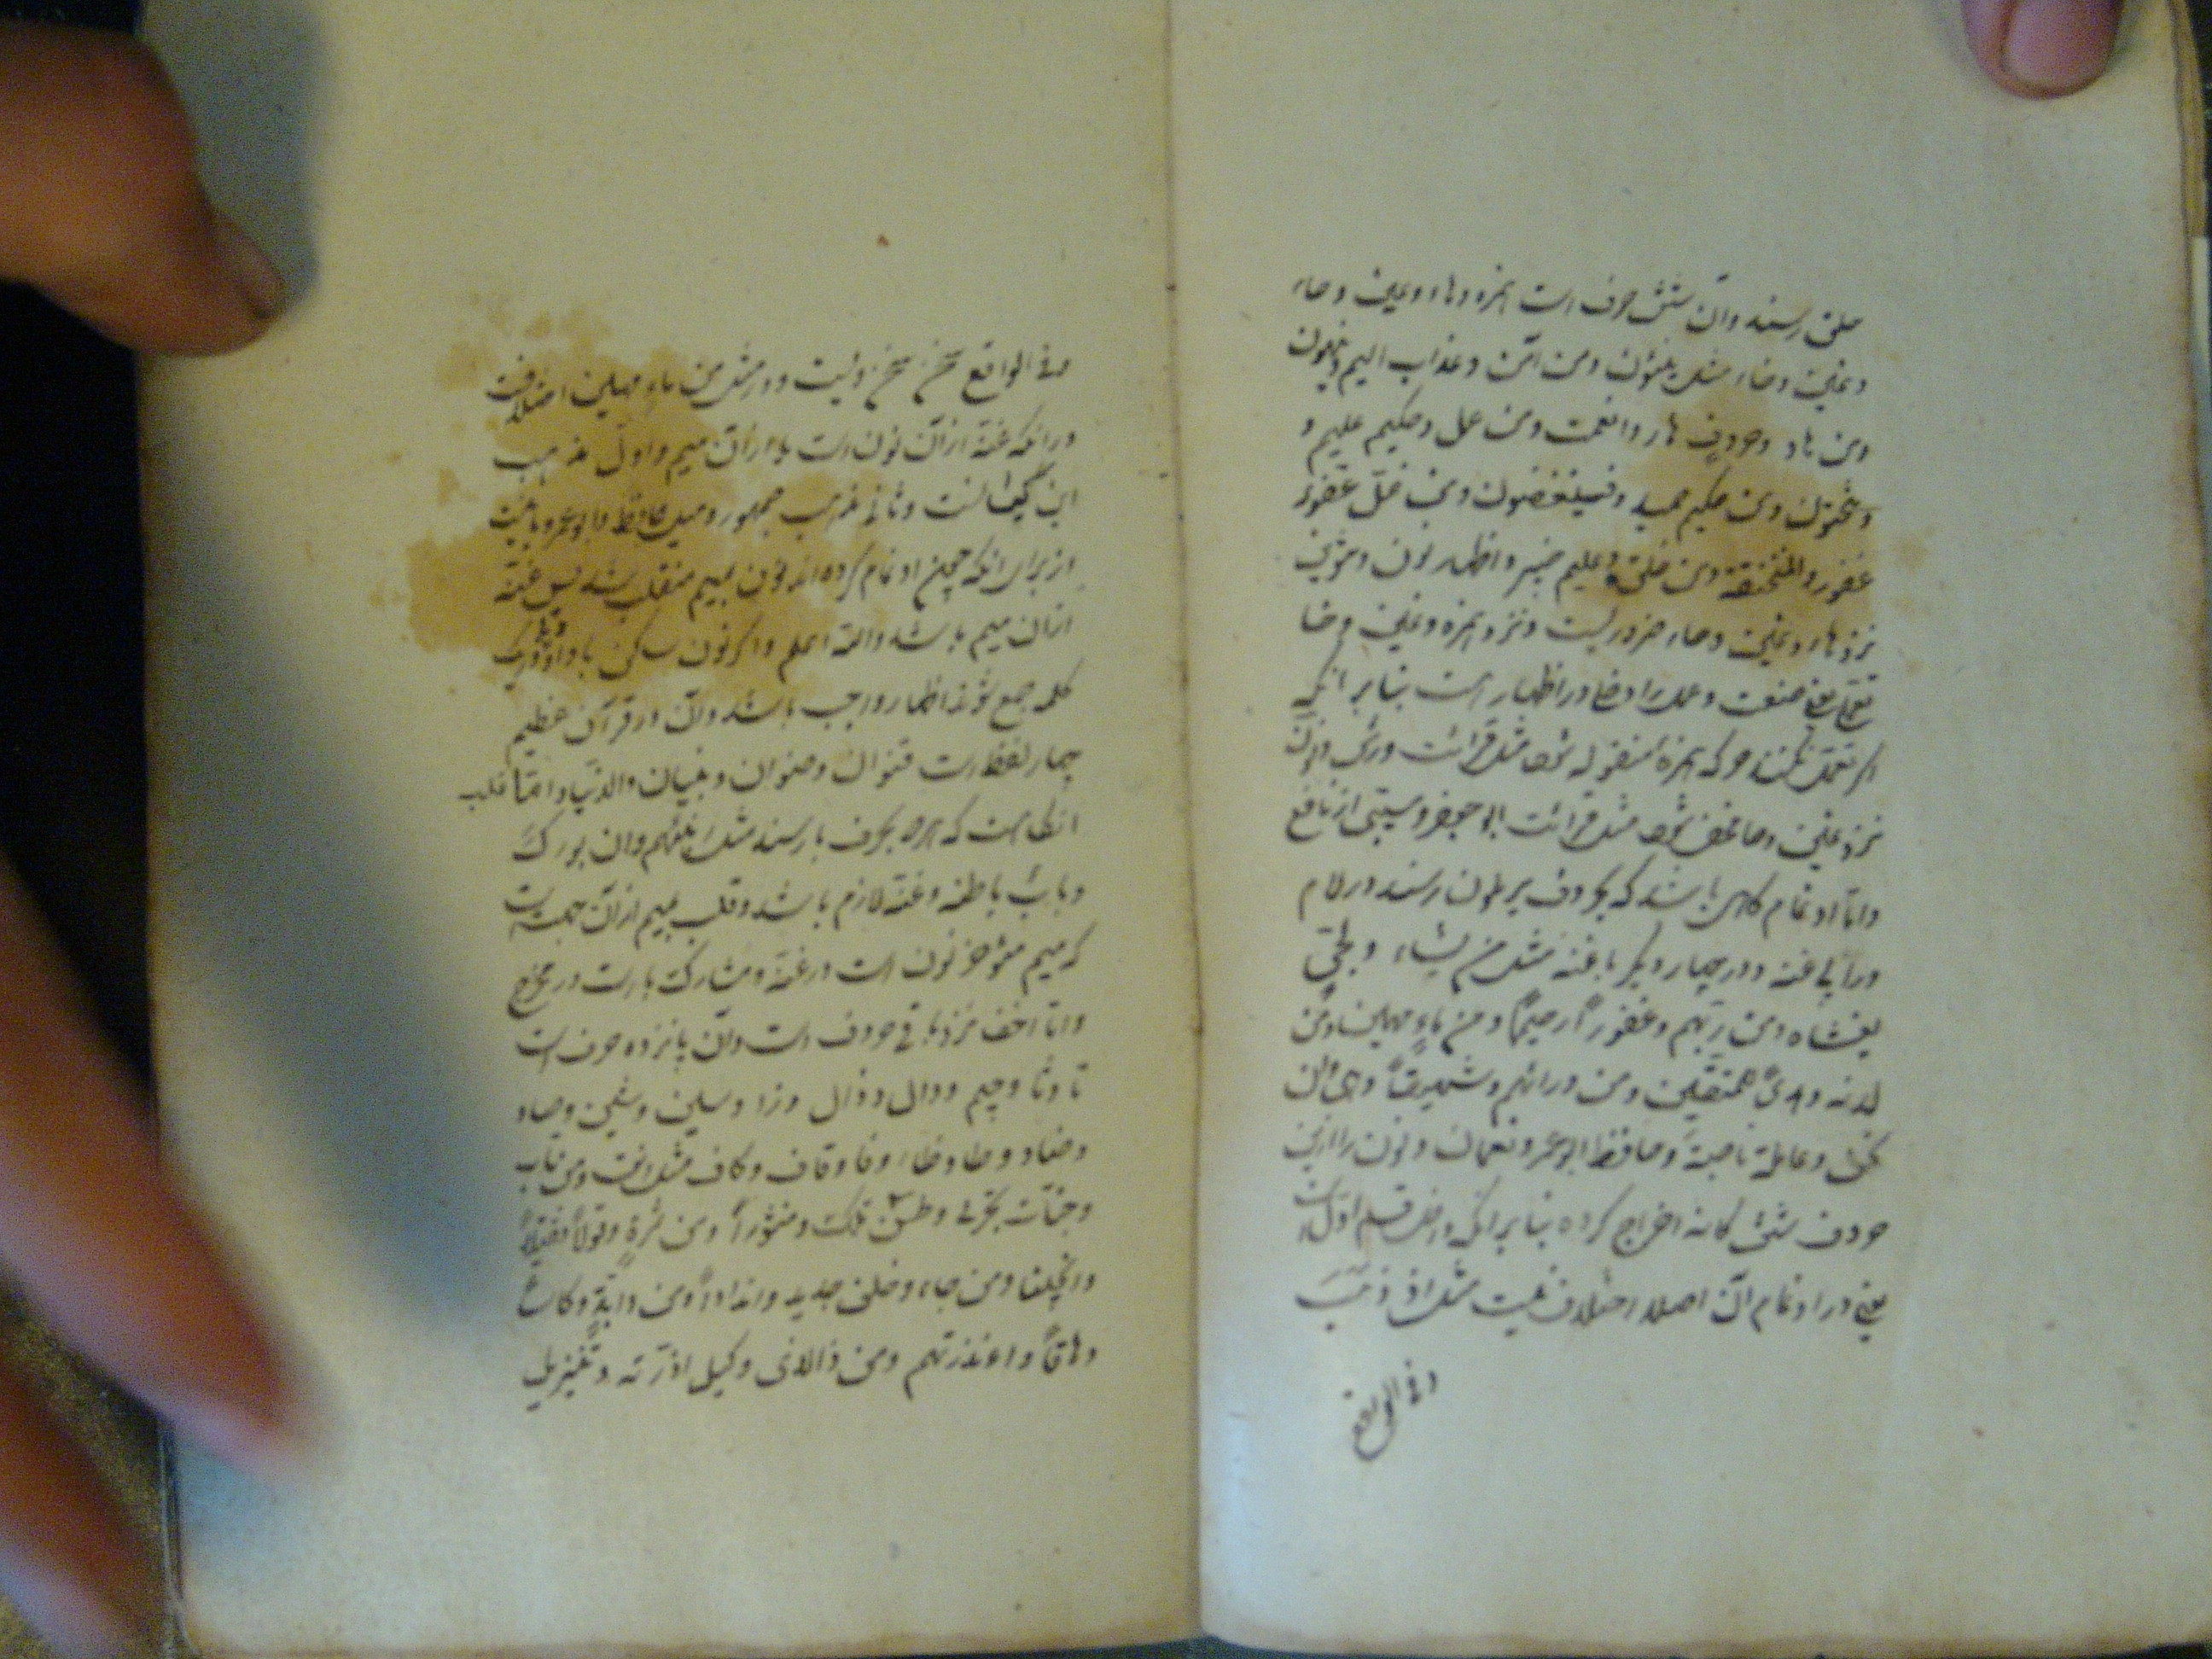 حلق رسند وآن شش حرف است همزه وهاء وعین وحاء
وغین وخاء مثل ینئون ومن امن وعذاب الیم وینهون
ومن هاد وجرف هار وانعمت ومن عمل وحکیم علیم و
وتنحتون ومن حکیم حمید وفسینغضون ومن غل عفو
غفور والمنخنقة ومن خلق وعلیم خبیر واظهار نون وتنوین
نزد هاء وعین وحاء ضروریست ونزد همزه وغین وخا
تعمل یعنی صنعت وعمل را دخل در اظهار است بنابر انکه
اکر تعمل نکنند حرکه همزه منقوله شود مثل قرائت ورش ونون
نزد غین وخا مخفی شود مثل قرائت ابو جعفر ومسیبی از نافع
واما ادغام کاهی باشد که بحروف یرملون رسند در لام
ورا بی غنه ودر چهار دیکر با غنه مثل من یشاء و
یغشاه ومن ربهم وغفورا رحیما ومن ماء مهین ومن
لدنه وهدی للمتقین ومن ورائهم وشهید
نحن وعاملة ناصبة وحافظ ابو عمرو نعمان ونون را ازین
حروف شش کانه اخراج کرده بنابر انکه در قسم اول
یعنی در ادغام آن اصلا اختلاف نیست مثل اذ ذهب
وفی الواقع
وفی الواقع سخن نیست ودر مثل من ماء مهین اختلافست
در انکه غنه از آن نون است یا از آن میم واول مذهب
ابن کیسانست وثانی مذهب جمهور ومیل حافظ ابو عمرو باینست
از برای انکه چون ادغام کرده اند نون بمیم منقلب شد پس غنه
از آن میم باشد والله اعلم واکر نون ساکن با واو ویا در یک
کلمه جمع شوند اظهار واجب باشد وآن در قرآن عظیم
چهار لفظ است قنوان وصنوان وبنیان والدنیا واما قلب
انکاهست که هر دو بحرف با رسند مثل انبئهم وان بورک
وغنه لازم باشد وقلب بمیم از آن جهت است
که میم نون است در غنه ومشارک با است در مخرج
واما اخفا نزد باقی حروف است وآن پانزده حرف است
تا وثا وجیم ودال وذال وزا وسین وشین وصاد
وضاد وطا وظا وفا وقاف وکاف مثل انت ومن تاب
وجنات تجری وطس تلک ومنثورا ومن ثمرة وقولا ثقیلا
وانجینا ومن جاء وخلق جدید واندادا ومن دابة وکاسا
دهاقا وءانذرتهم ومن ذا الذی وکیل وتنزیل